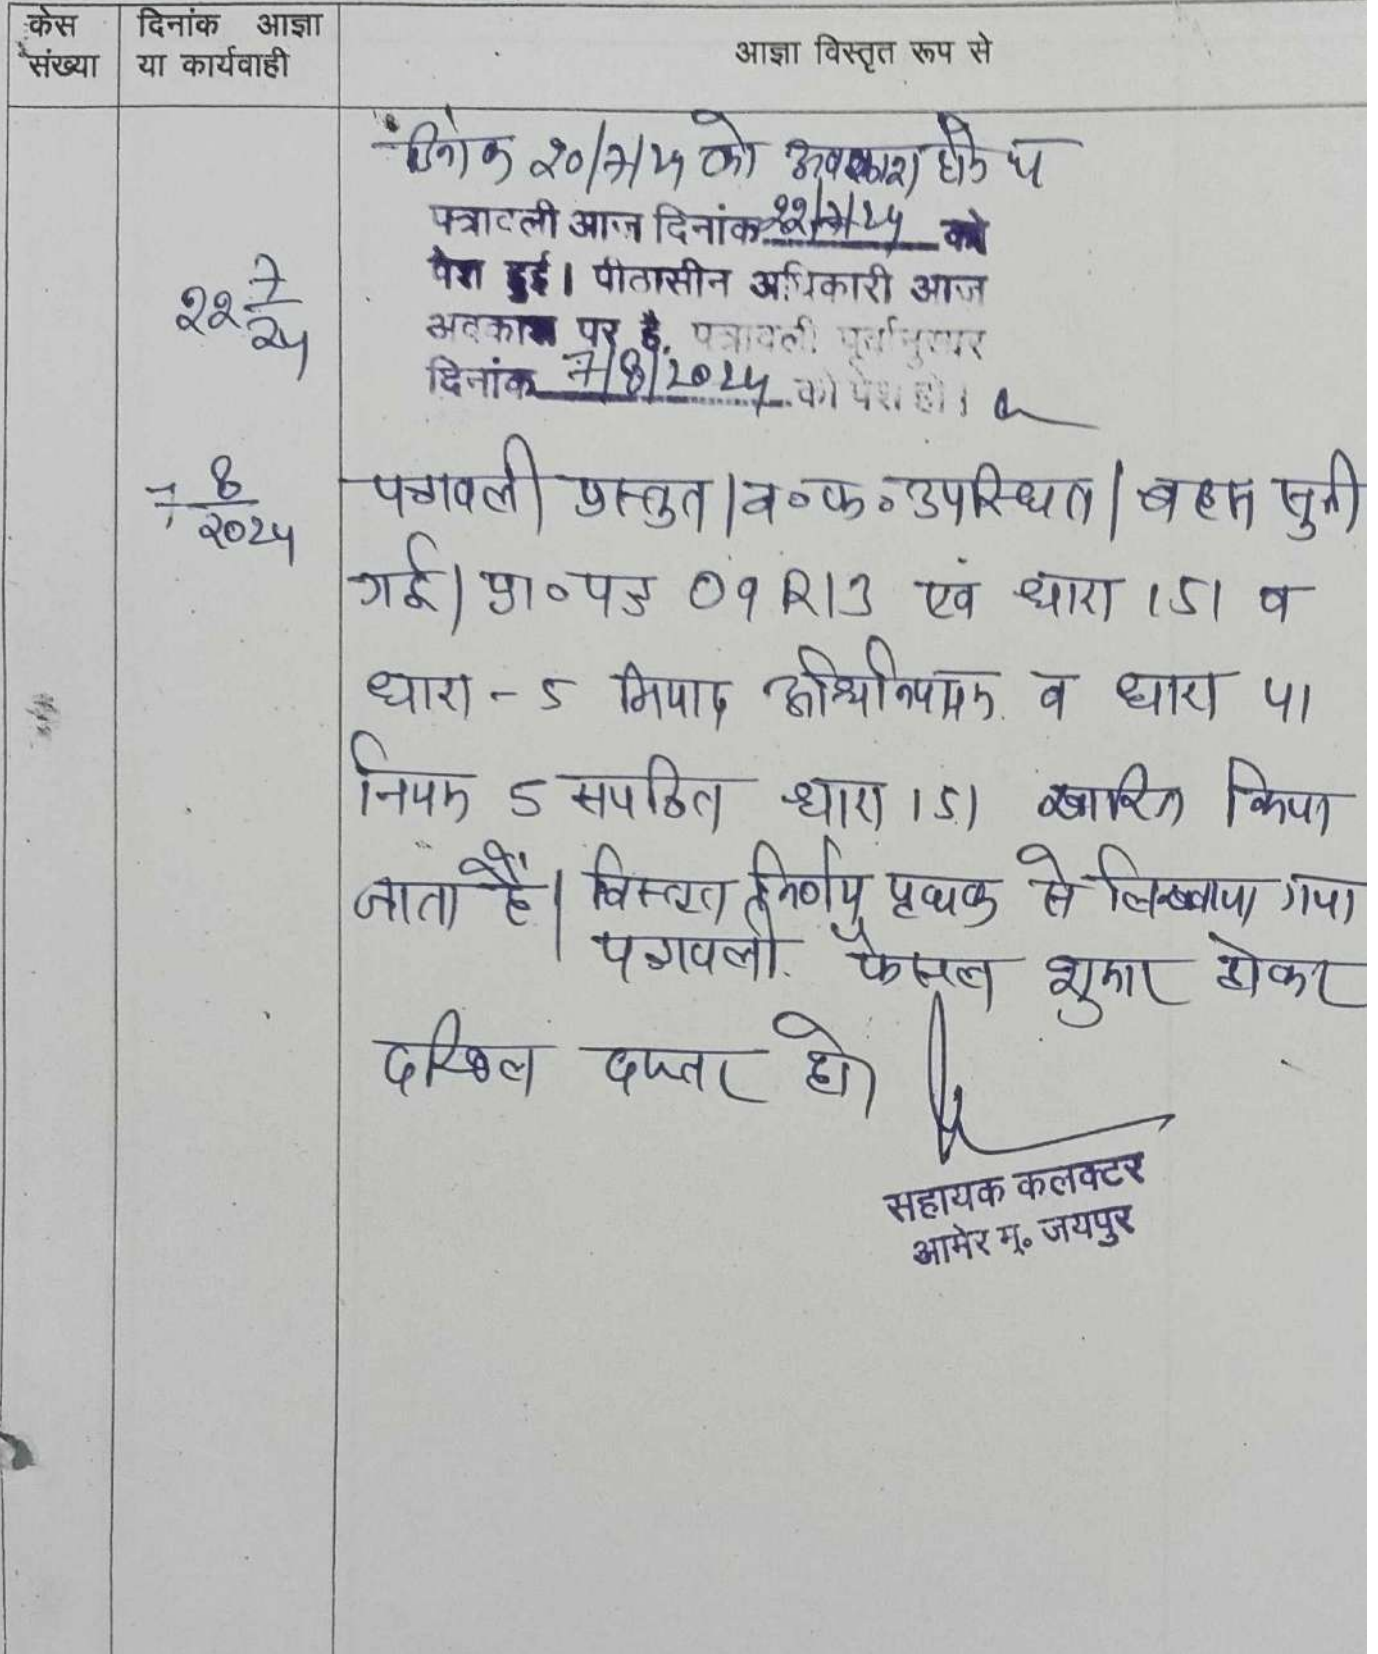 केस संख्या
दिनांक आज्ञा या कार्यवाही
आज्ञा विस्तृत रूप से
दिनांक २०/7/24 को अवकाश होने
22 7/24
पत्रावली आज दिनांक 22/7/24 को
पेश हुई। पीठासीन अधिकारी आज
अवकाश पर है, पत्रावली पूर्वानुसार
दिनांक 7/8/2024 को पेश हो।
7 8/2024
पत्रावली प्रस्तुत। व०क० उपस्थित। बहस सुनी
गई। प्रा०पत्र 09 R13 एवं धारा 151 व
धारा - 5 मियाद अधिनियम व धारा
नियम 5 सपठित धारा 151 खारिज किया
जाता है। विस्तृत निर्णय पृथक से लिखवाया गया
पत्रावली फैसल शुमार होकर
दाखिल दफ्तर हो
सहायक कलक्टर
आमेर मु. जयपुर